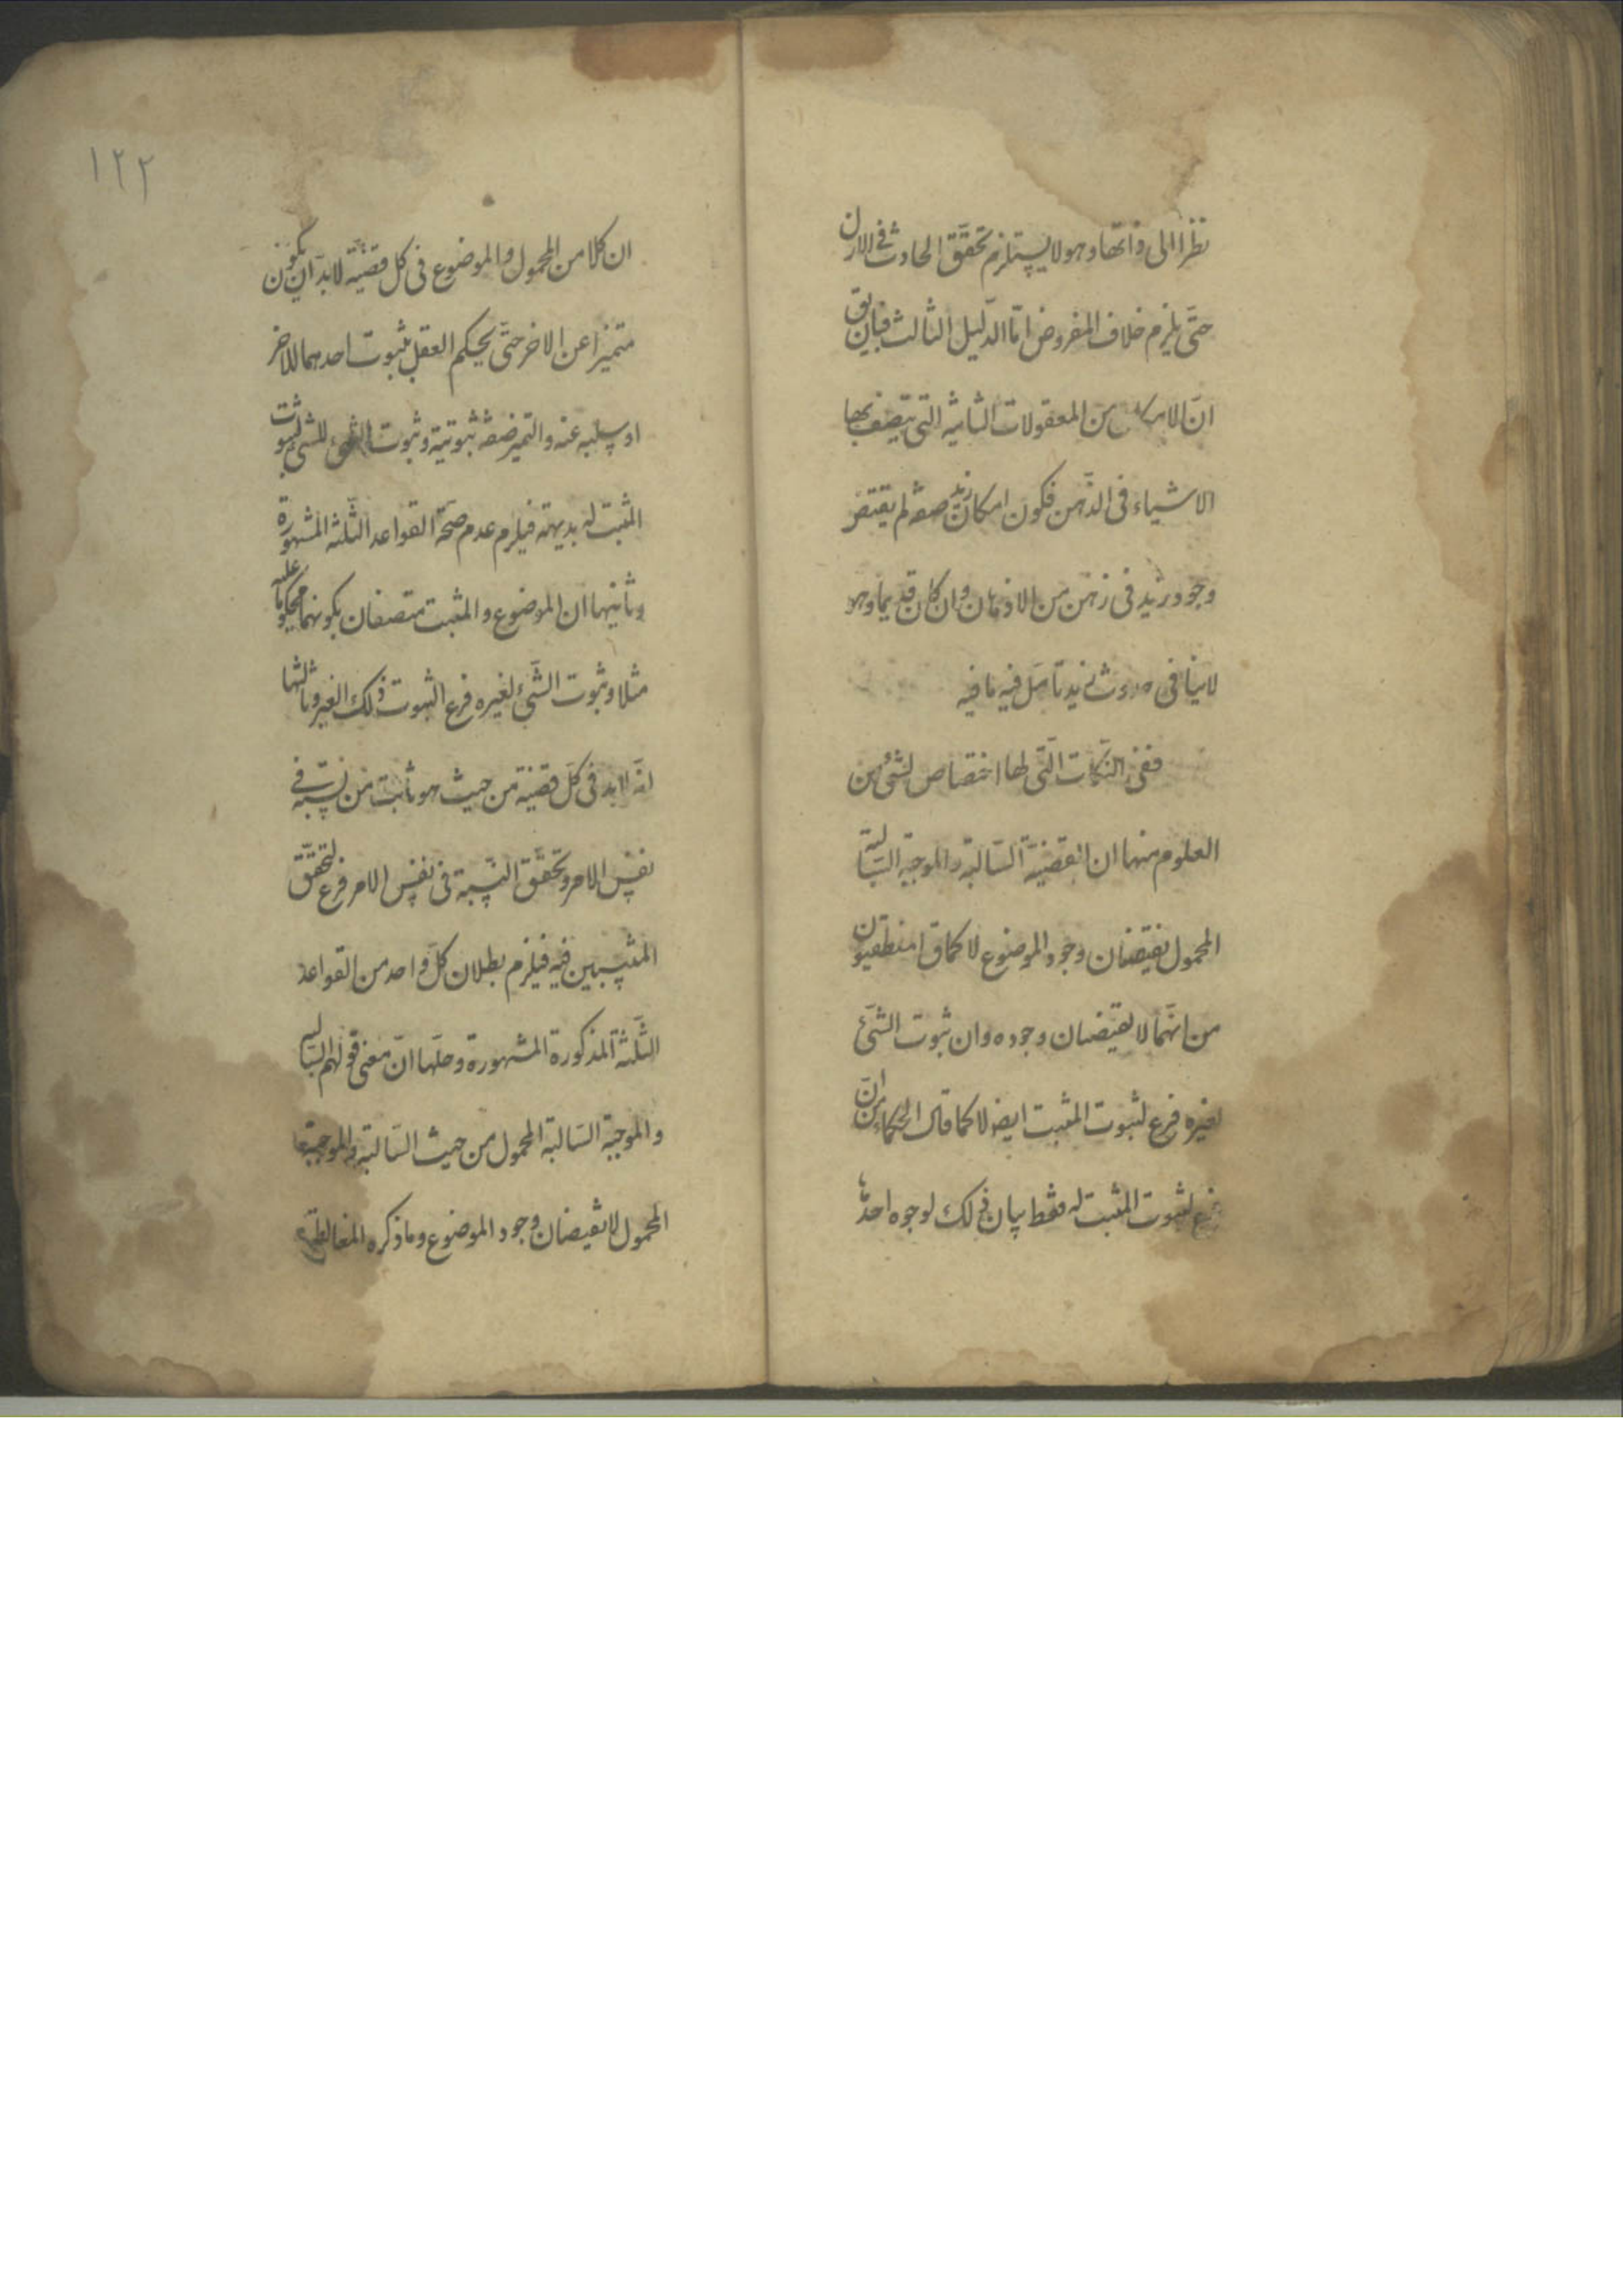 نظرا الى ذاتها وهو لا يستلزم تحقق الحادث فى الازل
حتى يلزم خلاف المفروض اما الدليل الثالث فبان يق
ان الامكان من المعقولات الثانية التى يتصف بها
الاشياء فى الذهن فكون امكان زيد صفة لم يقتض
وجود زيد فى ذهن من الاذهان وان كان قديما وهو
لا ينافى حدوث زيد تامل فيه ما فيه
ففى النكات التى لها اختصاص لشئ من
العلوم منها ان القضية السالبة والموجبة السالبة
المحمول يقتضان وجود الموضوع لا كما ق المنطقيون
من انهما لا يقتضيان وجوده وان ثبوت الشئ
لغيره فرع لثبوت المثبت ايضا لا كما قال الحكماء من ان
فرع لثبوت المثبت له فقط بيان ذلك لوجوه احدها
١٢٢
ان كلا من المحمول والموضوع فى كل قضية لا بد ان يكون
متميزا عن الاخر حتى يحكم العقل بثبوت احدهما للاخر
او سلبه عنه والتميز صفة ثبوتية وثبوت الشئ للشئ لثبوت
المثبت له بديهة فيلزم عدم صحة القواعد الثلثة المشهورة
وثانيها ان الموضوع والمثبت متصفان بكونهما محكوما عليه
مثلا وثبوت الشئ لغيره فرع الثبوت ذلك الغير وثالثها
انه لا بد فى كل قضية من حيث هو ثابت من نسبة فى
نفس الامر وتحقق النسبة فى نفس الامر فرع لتحقق
المنتسبين فيه فيلزم بطلان كل واحد من القواعد
الثلثة المذكورة المشهورة وحلها ان معنى قولهم السالبة
والموجبة السالبة المحمول من حيث السالبة والموجبتها
المحمول لا تقيضان وجود الموضوع وما ذكره المغالطة